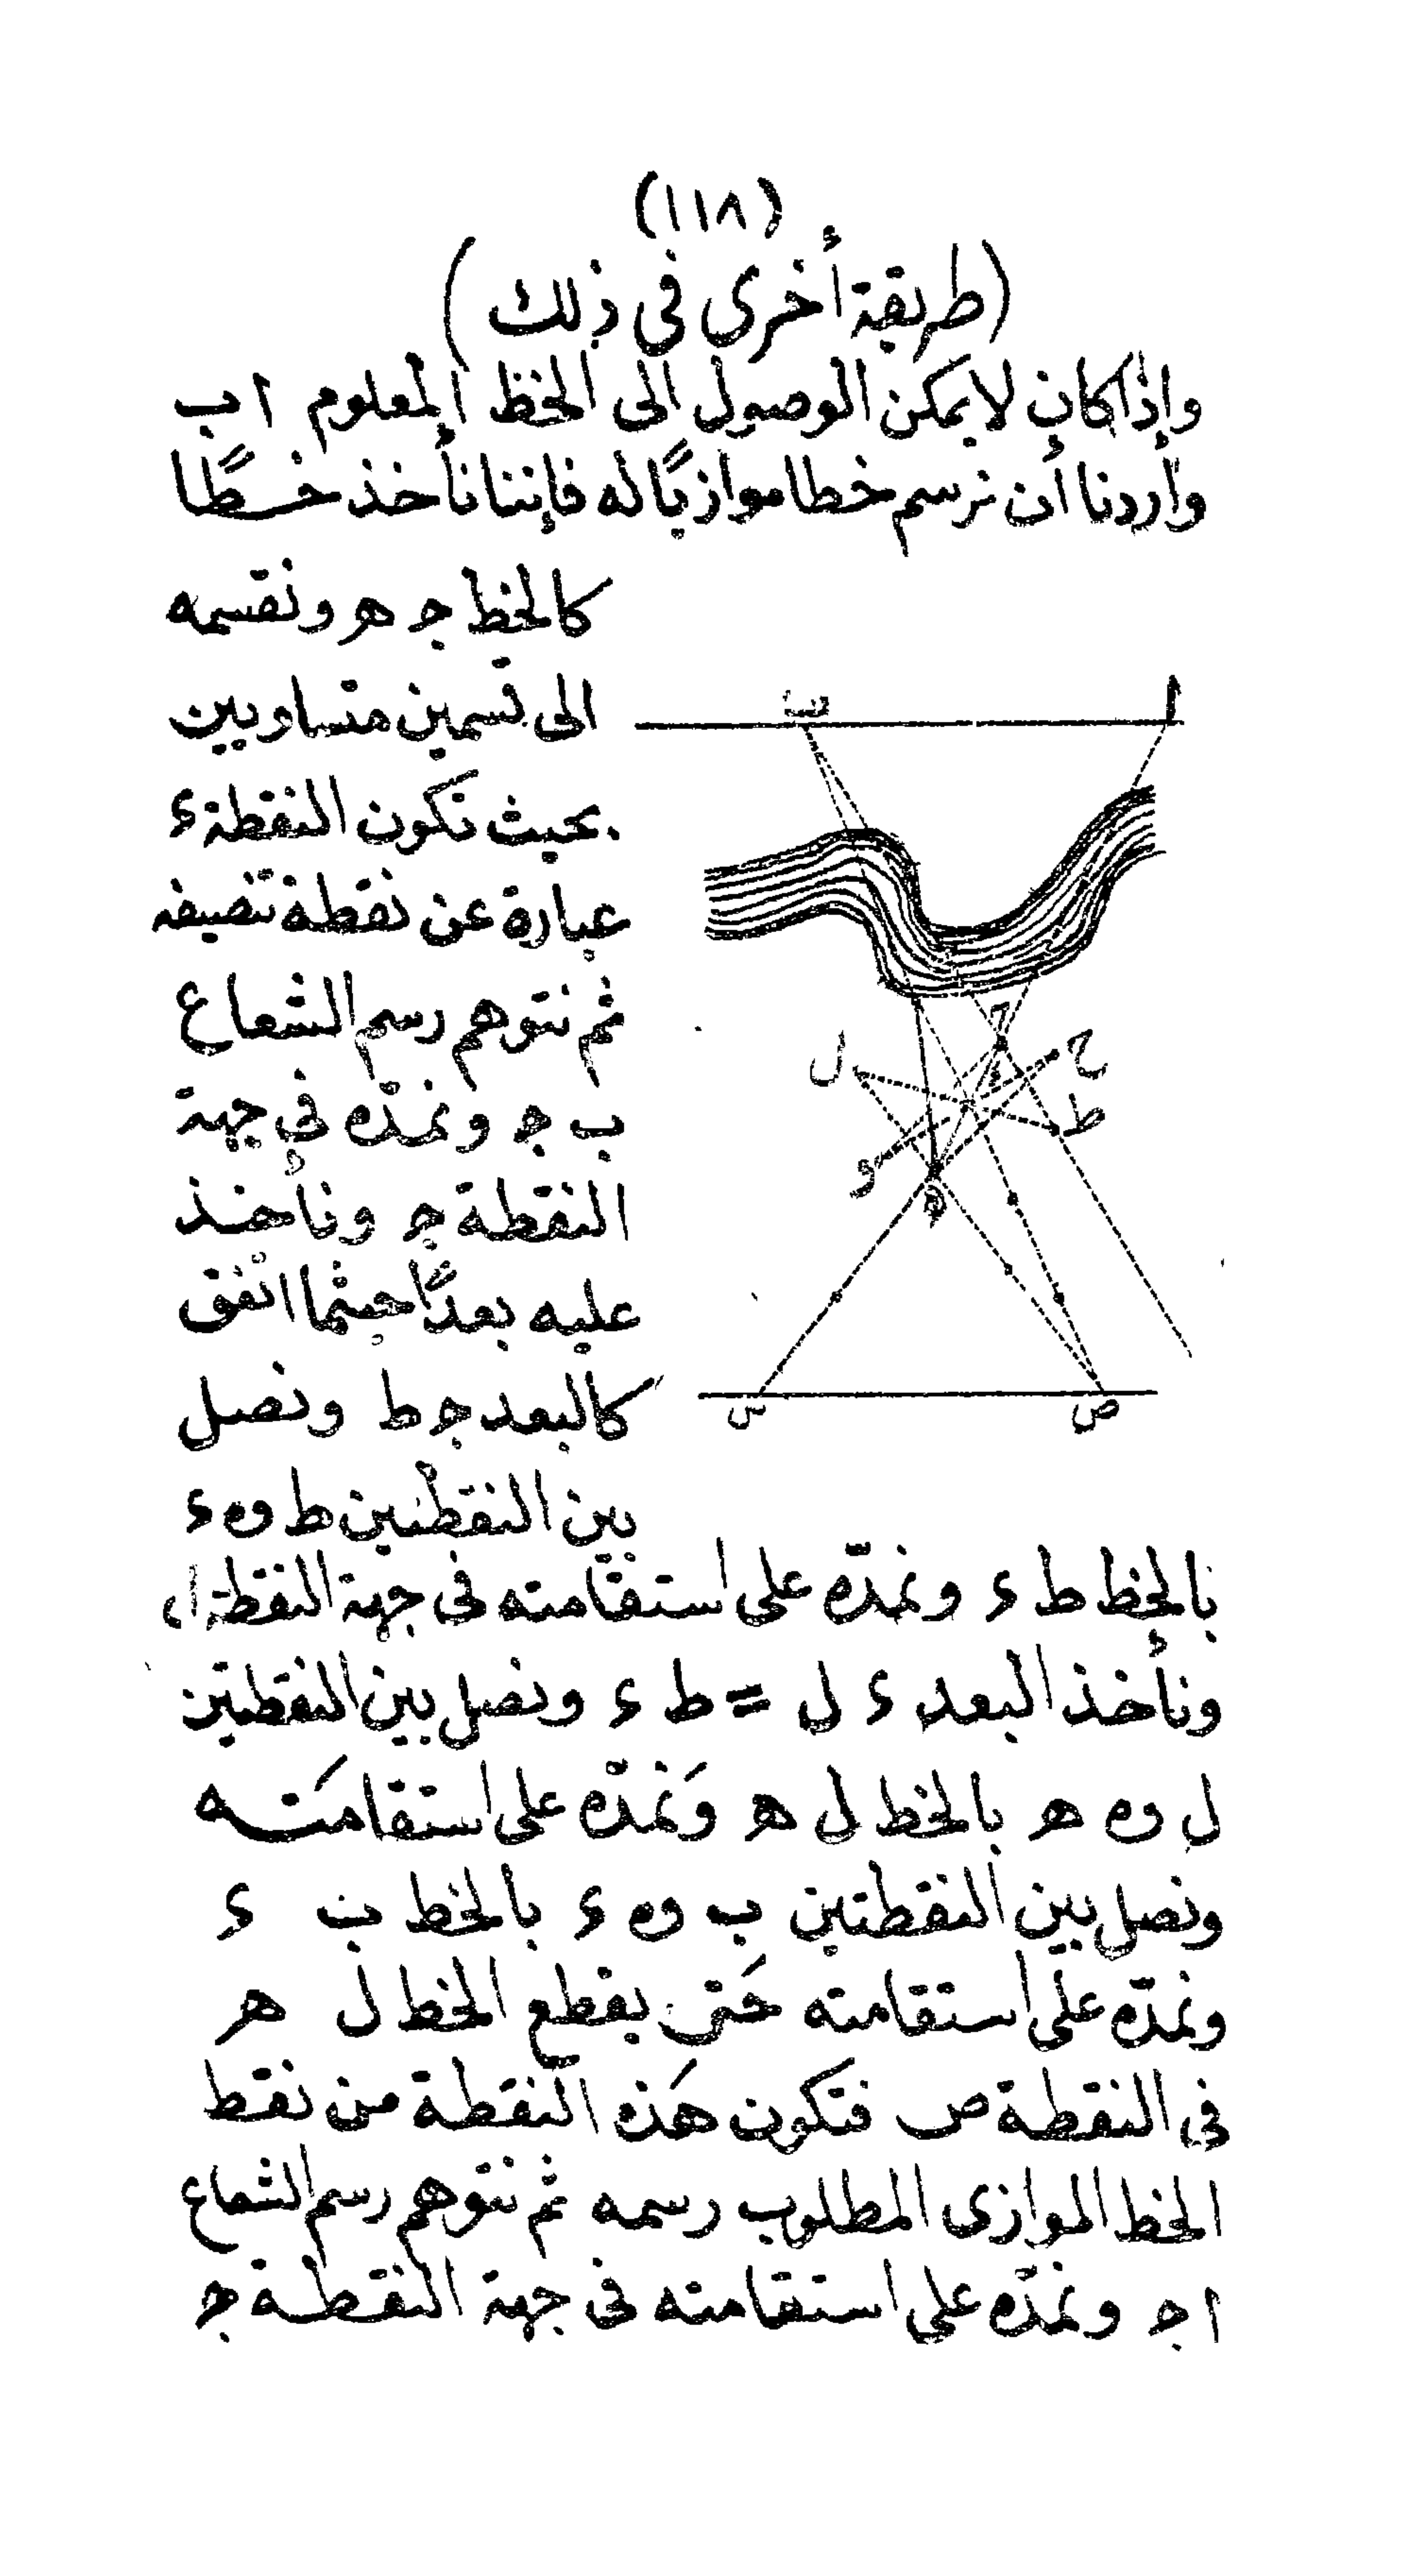 (١١٨)
(طريقة أخرى فى ذلك)
وإذا كان لا يمكن الوصول الى الخط المعلوم ا ب
وأردنا أن نرسم خطا موازيًا له فإننا نأخذ خطًّا
كالخط ج ه ونقسمه
الى قسمين متساويين
بحيث تكون النقطة ء
عبارة عن نقطة تنصيفه
ثم نتوهم رسم الشعاع
ب ج ونمدّه فى جهة
النقطة ج ونأخذ
عليه بعدًا حيثما اتفق
كالبعد ج ط ونصل
بين النقطتين ط و ء
ب
ا
ج
ء
ل
ح
ط
و
ه
س
ص
بالخط ط ء ونمدّه على استقامته فى جهة النقطة ا،
ونأخذ البعد ء ل = ط ء ونصل بين النقطتين
ل و ه بالخط ل ه وَنمدّه على استقامَته
ونصل بين النقطتين ب و ء بالخط ب ء
ونمدّه على استقامته حَتى يقطع الخط ل ه
فى النقطة ص فتكون هَذه النقطة من نقط
الخط الموازى المطلوب رسمه ثم نتوهم رسم الشعاع
ا ج ونمدّه على استقامته فى جهة النقطة ج